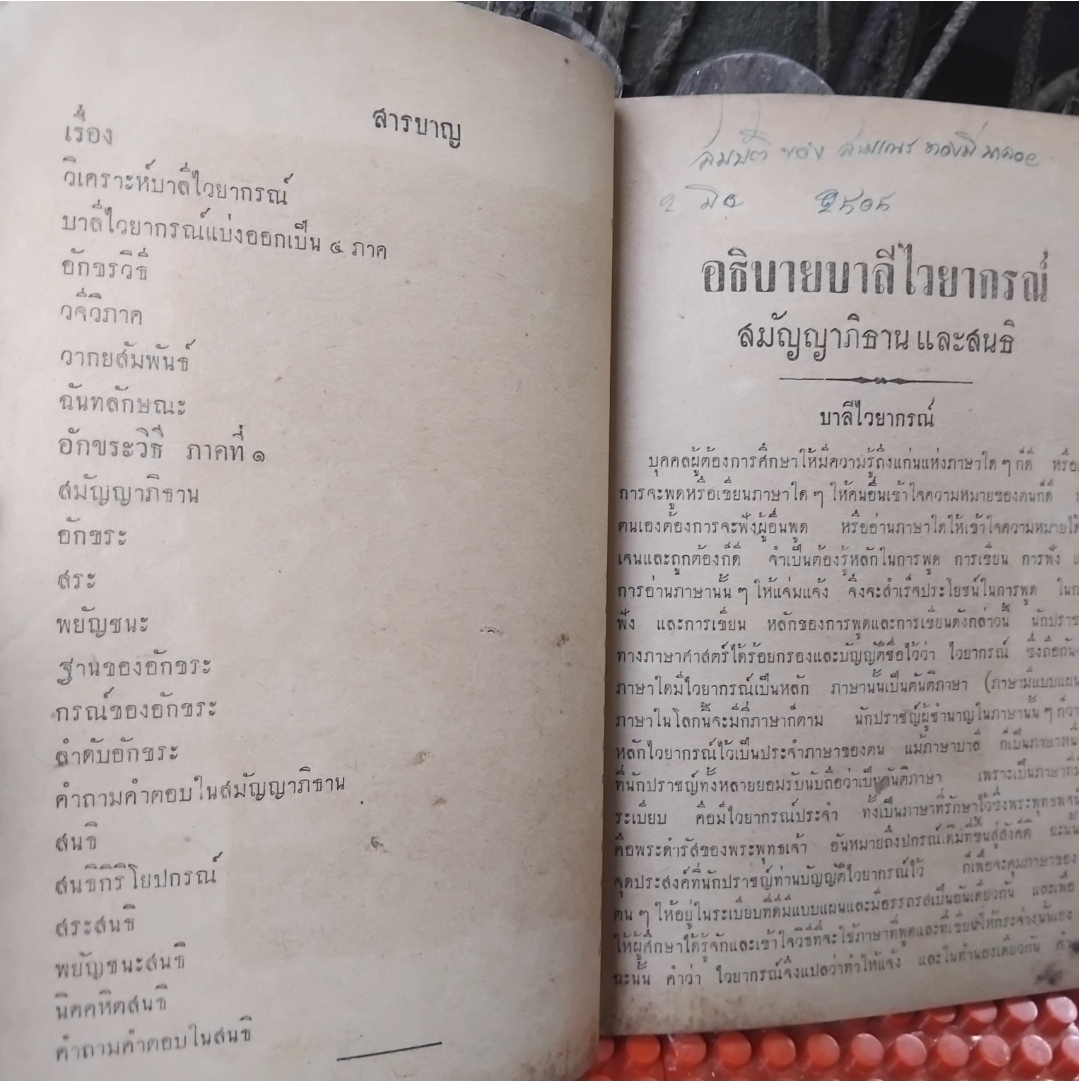 สารบาญ
เรื่อง
วิเคราะห์บาลีไวยากรณ์
บาลีไวยากรณ์แบ่งออกเป็น ๔ ภาค
อักขรวิธี
วจีวิภาค
วากยสัมพันธ์
ฉันทลักษณะ
อักขระวิธี ภาคที่ ๑
สมัญญาภิธาน
อักขระ
สระ
พยัญชนะ
ฐานของอักขระ
กรณ์ของอักขระ
ลำดับอักขระ
คำถามคำตอบในสมัญญาภิธาน
สนธิ
สนธิกิริโยปกรณ์
สระสนธิ
พยัญชนะสนธิ
นิคคหิตสนธิ
คำถามคำตอบในสนธิ
สมบัติ ของ สามเณร
๒๕๐๕
อธิบายบาลีไวยากรณ์
สมัญญาภิธาน และสนธิ
บาลีไวยากรณ์
บุคคลผู้ต้องการศึกษาให้มีความรู้ถึงแก่นแห่งภาษาใด ๆ ก็ดี หรือ
การจะพูดหรือเขียนภาษาใด ๆ ให้คนอื่นเข้าใจความหมายของตนก็ดี
ตนเองต้องการจะฟังผู้อื่นพูด หรืออ่านภาษาใดให้เข้าใจความหมายได้
เจนและถูกต้องก็ดี จำเป็นต้องรู้หลักในการพูด การเขียน การฟัง
การอ่านภาษานั้น ๆ ให้แจ่มแจ้ง จึงจะสำเร็จประโยชน์ในการพูด ในก
ฟัง และการเขียน หลักของการพูดและการเขียนดังกล่าวนี้ นักปราช
ทางภาษาศาสตร์ได้ร้อยกรองและบัญญัติชื่อไว้ว่า ไวยากรณ์ ซึ่งถือกัน
ภาษาใดมีไวยากรณ์เป็นหลัก ภาษานั้นเป็นตันติภาษา (ภาษามีแบบแผน
ภาษาในโลกนี้จะมีกี่ภาษาก็ตาม นักปราชญ์ผู้ชำนาญในภาษานั้น ๆ ก็วา
หลักไวยากรณ์ไว้เป็นประจำภาษาของตน แม้ภาษาบาลี ก็เป็นภาษาหนึ่
ที่นักปราชญ์ทั้งหลายยอมรับนับถือว่าเป็นตันติภาษา เพราะเป็นภาษาที่มี
ระเบียบ คือมีไวยากรณ์ประจำ ทั้งเป็นภาษาที่รักษาไว้ซึ่งพระพุทธพจน์
คือพระดำรัสของพระพุทธเจ้า อันหมายถึงปกรณ์เดิมที่ขึ้นสู่สังคีติ ฉะนั้น
จุดประสงค์ที่นักปราชญ์ท่านบัญญัติไวยากรณ์ไว้ ก็เพื่อจะคุมภาษาของ
ตน ๆ ให้อยู่ในระเบียบที่ดีมีแบบแผนและมีอรรถรสเป็นอันเดียวกัน และเพื่อ
ให้ผู้ศึกษาได้รู้จักและเข้าใจวิธีที่จะใช้ภาษาที่พูดและที่เขียนให้กระจ่างนั่นเอง
ฉะนั้น คำว่า ไวยากรณ์จึงแปลว่าทำให้แจ้ง และในทำนองเดียวกัน คำ